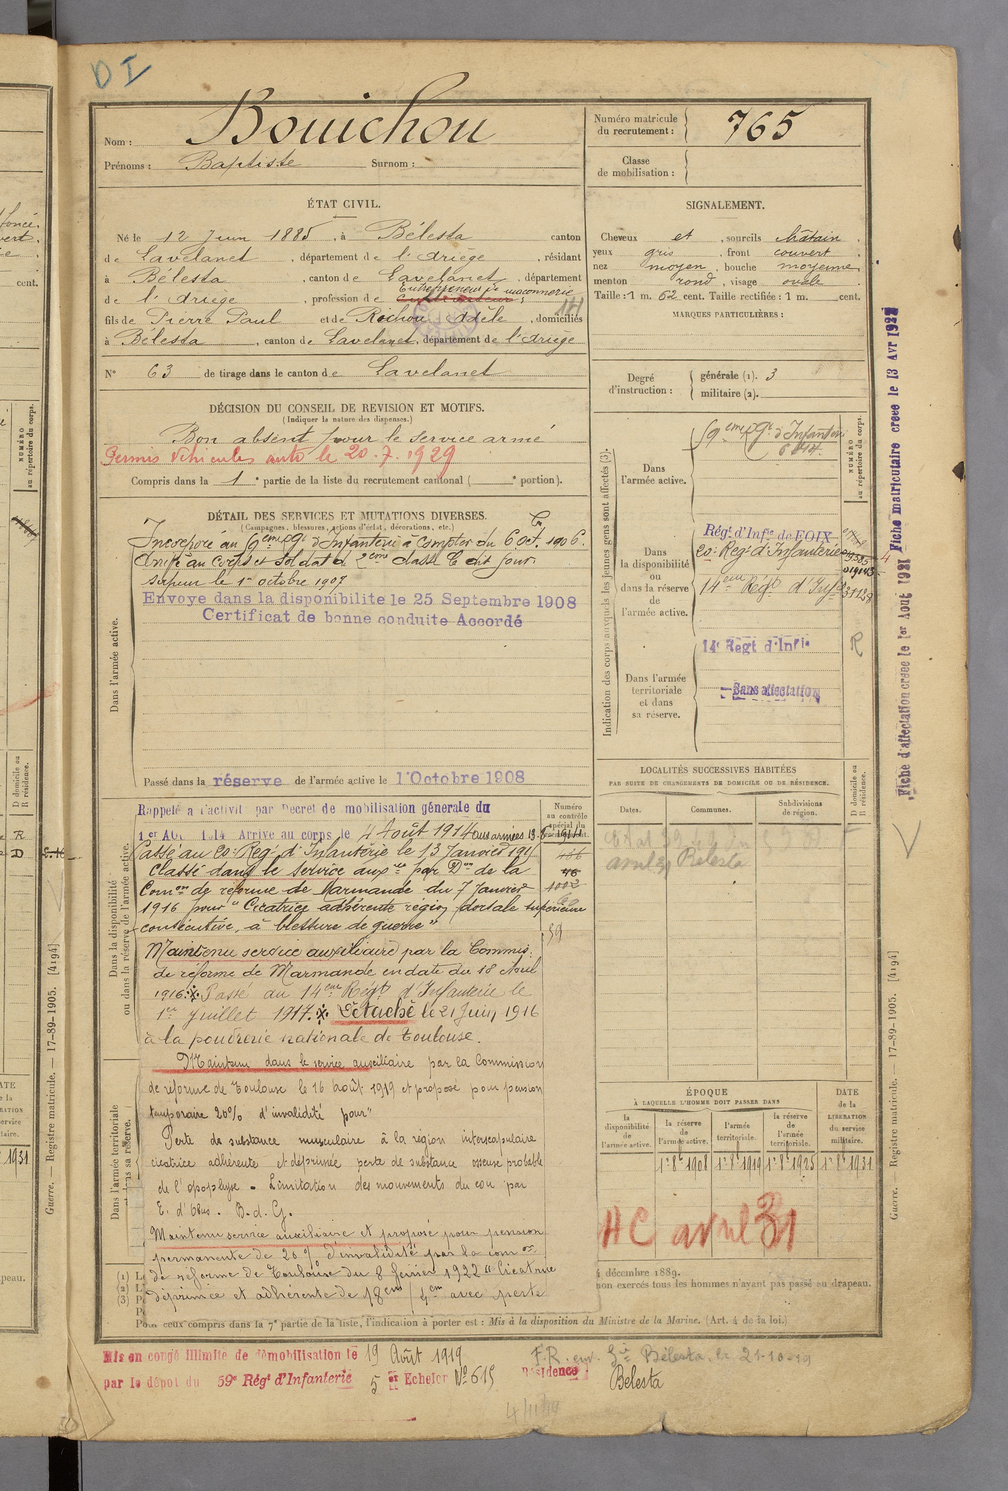 D I
Nom : Bouichou
Prénoms : Baptiste Surnom :
Numéro matricule du recrutement : 765
Classe de mobilisation :
ÉTAT CIVIL.
Né le 12 Juin 1885, à Bélesta canton
de Lavelanet, département de l'Ariège, résidant
à Bélesta, canton de Lavelanet, département
Entrepreneur de maconnerie
de l'Ariège, profession de
fils de Pierre Paul et de Rochou Adèle, domiciliés
à Bélesta, canton de Lavelanet, département de l'Ariège
N° 63 de tirage dans le canton de Lavelanet
SIGNALEMENT.
Cheveux et, sourcils châtain.
yeux gris, front couvert
nez moyen, bouche moyenne
menton rond, visage ovale
Taille : 1 m. 62 cent. Taille rectifiée : 1 m. cent.
MARQUES PARTICULIÈRES :
Degré d'instruction : générale (1). 3
militaire (2).
DÉCISION DU CONSEIL DE REVISION ET MOTIFS.
(Indiquer la nature des dispenses.)
Bon absent pour le service armé
Permis Véhicules auto le 20.7.1929
Compris dans la 1e partie de la liste du recrutement cantonal ( e portion).
DÉTAIL DES SERVICES ET MUTATIONS DIVERSES.
(Campagnes, blessures, actions d'éclat, décorations, etc.)
Dans l'armée active.
Incorporé au 9eme Rgt d'Infanterie à compter du 6 oct. 1906.
Arrivé au corps et soldat de 2eme classe le dit jour.
Sapeur le 1er octobre 1907
Envoye dans la disponibilite le 25 Septembre 1908
Certificat de bonne conduite Accordé
Passé dans la réserve de l'armée active le 1 Octobre 1908
Indication des corps auxquels les jeunes gens sont affectés (3).
NUMÉRO au répertoire du corps.
Dans l'armée active.
9eme Rgt d'Infanterie
Dans la disponibilité ou dans la réserve de l'armée active.
Rég! d'Infie de FOIX
20e Reg. d'Infanterie
14eme Régt d'Infie
14e Regt d'Infie
R
Dans l'armée territoriale et dans sa réserve.
Sans affectation
Fiche d'affectation creee le 1er Aout 1921 Fiche matriculaire creee le 13 Avr 1922
Dans la disponibilité ou dans la réserve de l'armée active.
Numéro au contrôle spécial du
Rappelé a l'activit par Decret de mobilisation générale du
1er AOU 1914 Arrive au corps le 4 Août 1914
Passé au 20e Reg. d'Infanterie le 13 Janvier 191
Classé dans le service auxre par Don de la
Comon de réforme de Marmande du 7 Janvier
1916 pour "Cicatrice adhérente région dorsale supérieure
consécutive à blessure de guerre"
59
Maintenu service auxiliaire par la Commis.
de réforme de Marmande en date du 18 Avril
1916. Passé au 14eme Régt d'Infanterie le
1er Juillet 1917. Détaché le 21 Juin 1916
à la poudrerie nationale de Toulouse.
Dans l'armée territoriale
Maintenu dans le service auxiliaire par la Commission
de réforme de Toulouse le 16 août 1919 et proposé pour pension
temporaire 20% d'invalidité pour"
Perte de substance musculaire à la région interscapulaire
cicatrice adhérente et déprimée perte de substance osseuse probable
de l'apophyse. Limitation des mouvements du cou par
E. d'obus. B. d. G.
Maintenu service auxiliaire et proposé pour pension
permanente de 20% d'invalidité par la comon
de réforme de Toulouse du 8 février 1922 "Cicatrice
déprimée et adhérente de 18cm/4cm avec perte
LOCALITÉS SUCCESSIVES HABITÉES
PAR SUITE DE CHANGEMENTS DE DOMICILE OU DE RÉSIDENCE.
Dates. Communes. Subdivisions de région. D domicile ou R résidence.
avril 29 Bélesta
ÉPOQUE
À LAQUELLE L'HOMME DOIT PASSER DANS
la disponibilité de l'armée active.
la réserve de l'armée active.
l'armée territoriale.
la réserve de l'armée territoriale.
DATE de la LIBERATION du service militaire.
1er 8bre 1908 1er 8bre 1919 1er 8bre 1925 1er 8bre 1931
HC avril 31
décembre 1889.
non exercés tous les hommes n'ayant pas passé au drapeau.
Pour ceux compris dans la 7e partie de la liste, l'indication à porter est : Mis à la disposition du Ministre de la Marine. (Art. 4 de la loi.)
Mis en congé illimité de démobilisation le 19 Août 1919
par le dépôt du 59e Régt d'Infanterie 5 er Echelon N° 615
F.R. env. Gie Bélesta, le 21-10-19
Résidence : Bélesta
Guerre. — Registre matricule. — 17-89-1905. [4194]
Guerre. — Registre matricule. — 17-89-1905. [4194]